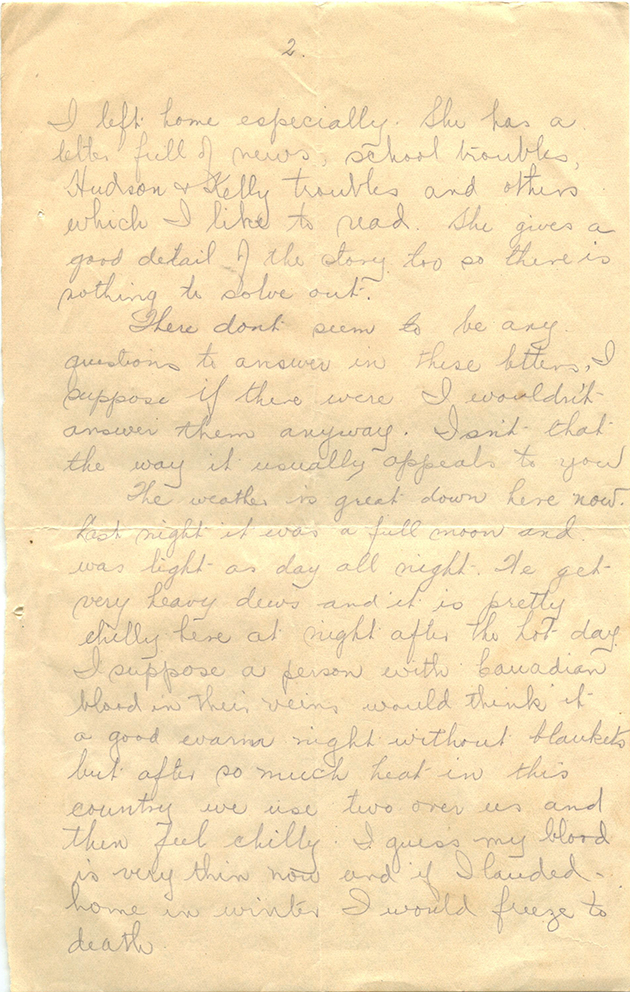 2.
I left home especially. She has a
letter full of news, school troubles,
Hudson & Kelly troubles and others
which I like to read. She gives a
good detail of the story too so there is
nothing to solve out.
There dont seem to be any
questions to answer in these letters, I
suppose if there were I wouldn't
answer them anyway. Isn't that
the way it usually appeals to you
The weather is great down here now.
Last night it was a full moon and
was light as day all night. We get
very heavy dews and it is pretty
chilly here at night after the hot day.
I suppose a person with Canadian
blood in their veins would think it
a good warm night without blankets
but after so much heat in this
country we use two over us and
then feel chilly. I guess my blood
is very thin now and if I landed
home in winter I would freeze to
death.